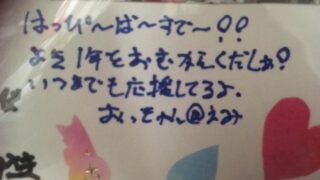 はっぴ〜ば〜すで〜!!
よき1年をおむかえくだしあ!
いつまでも応援してるよ.
おっちゃん@えみ